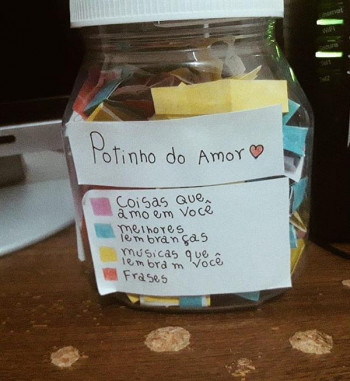 Potinho do Amor
Coisas que
amo em você
melhores
lembranças
músicas que
lembram você
Frases